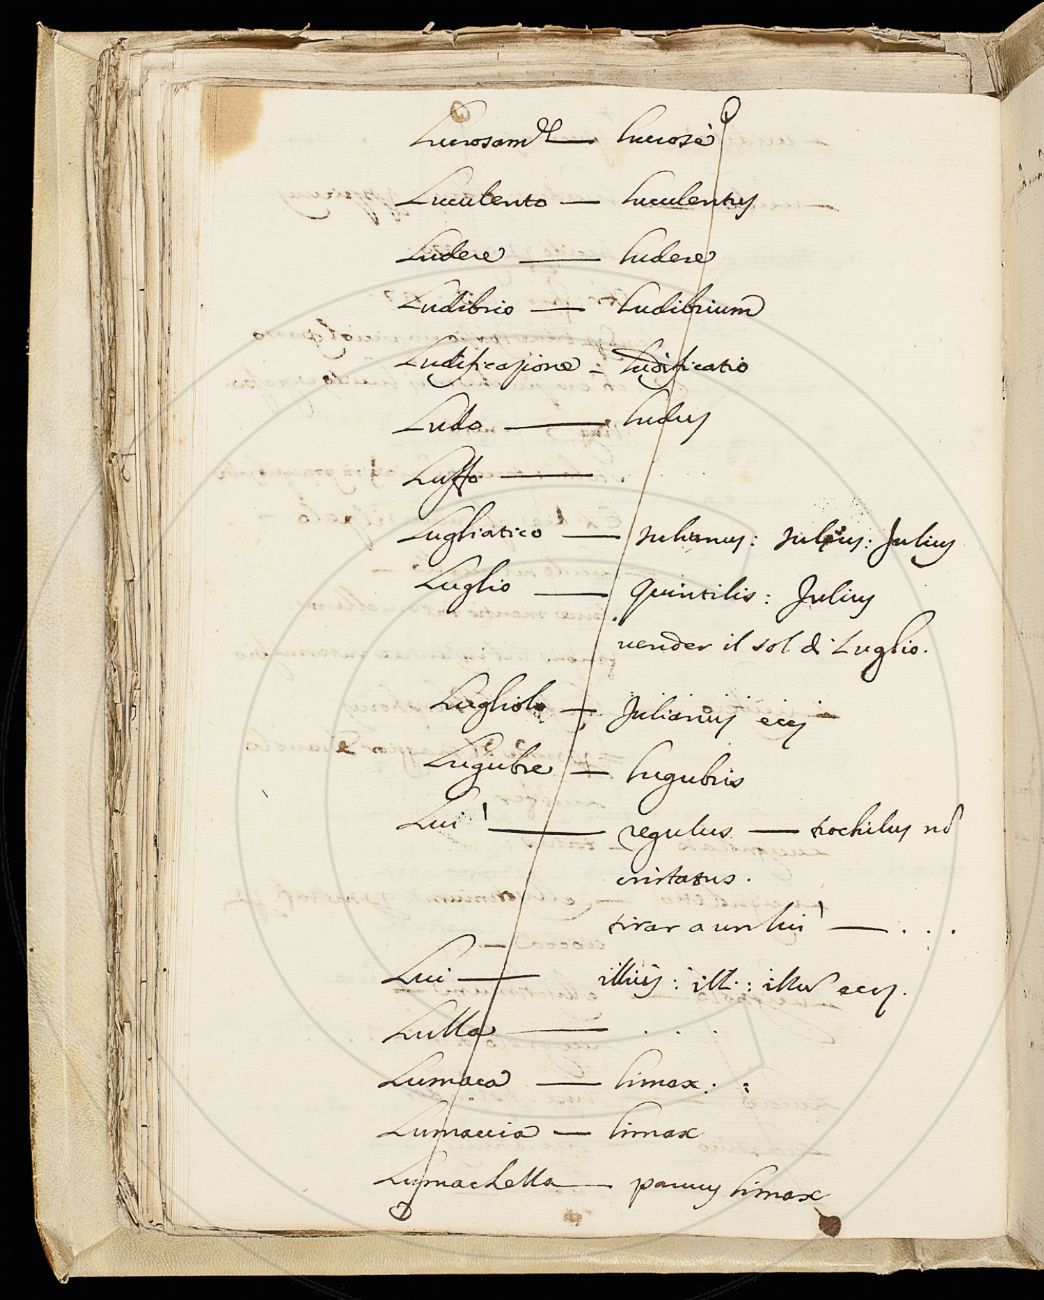 Lucrosam.te — lucrosè
Luculento — luculentus
Ludere — ludere
Ludibrio — ludibrium
Ludificazione — ludificatio
Ludo — ludus
Luffo —
Lugliatico — Julianus: Julius: Julius
Luglio — quintilis: Julius
vender il sol di Luglio.
Lugliolo — Julianus ecc.
Lugubre — lugubris
Lui' — regulus — trochilus nõ
cristatus.
tirar a un lui' — . . .
Lui — illius: illi: illũ ecc.
Lulla — . . .
Lumaca — limax. :
Lumaccia — limax
Lumachella — parvus limax